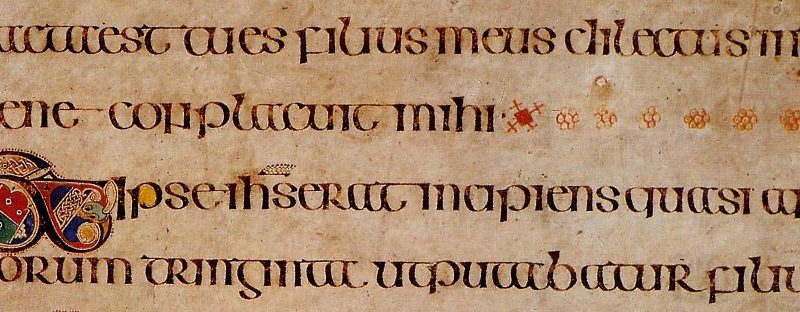 acta est tu es filius meus dilectus in
ene conplacuit mihi
Et ipse ihs erat incipiens quasi an
orum tringinta ut putabatur filiu